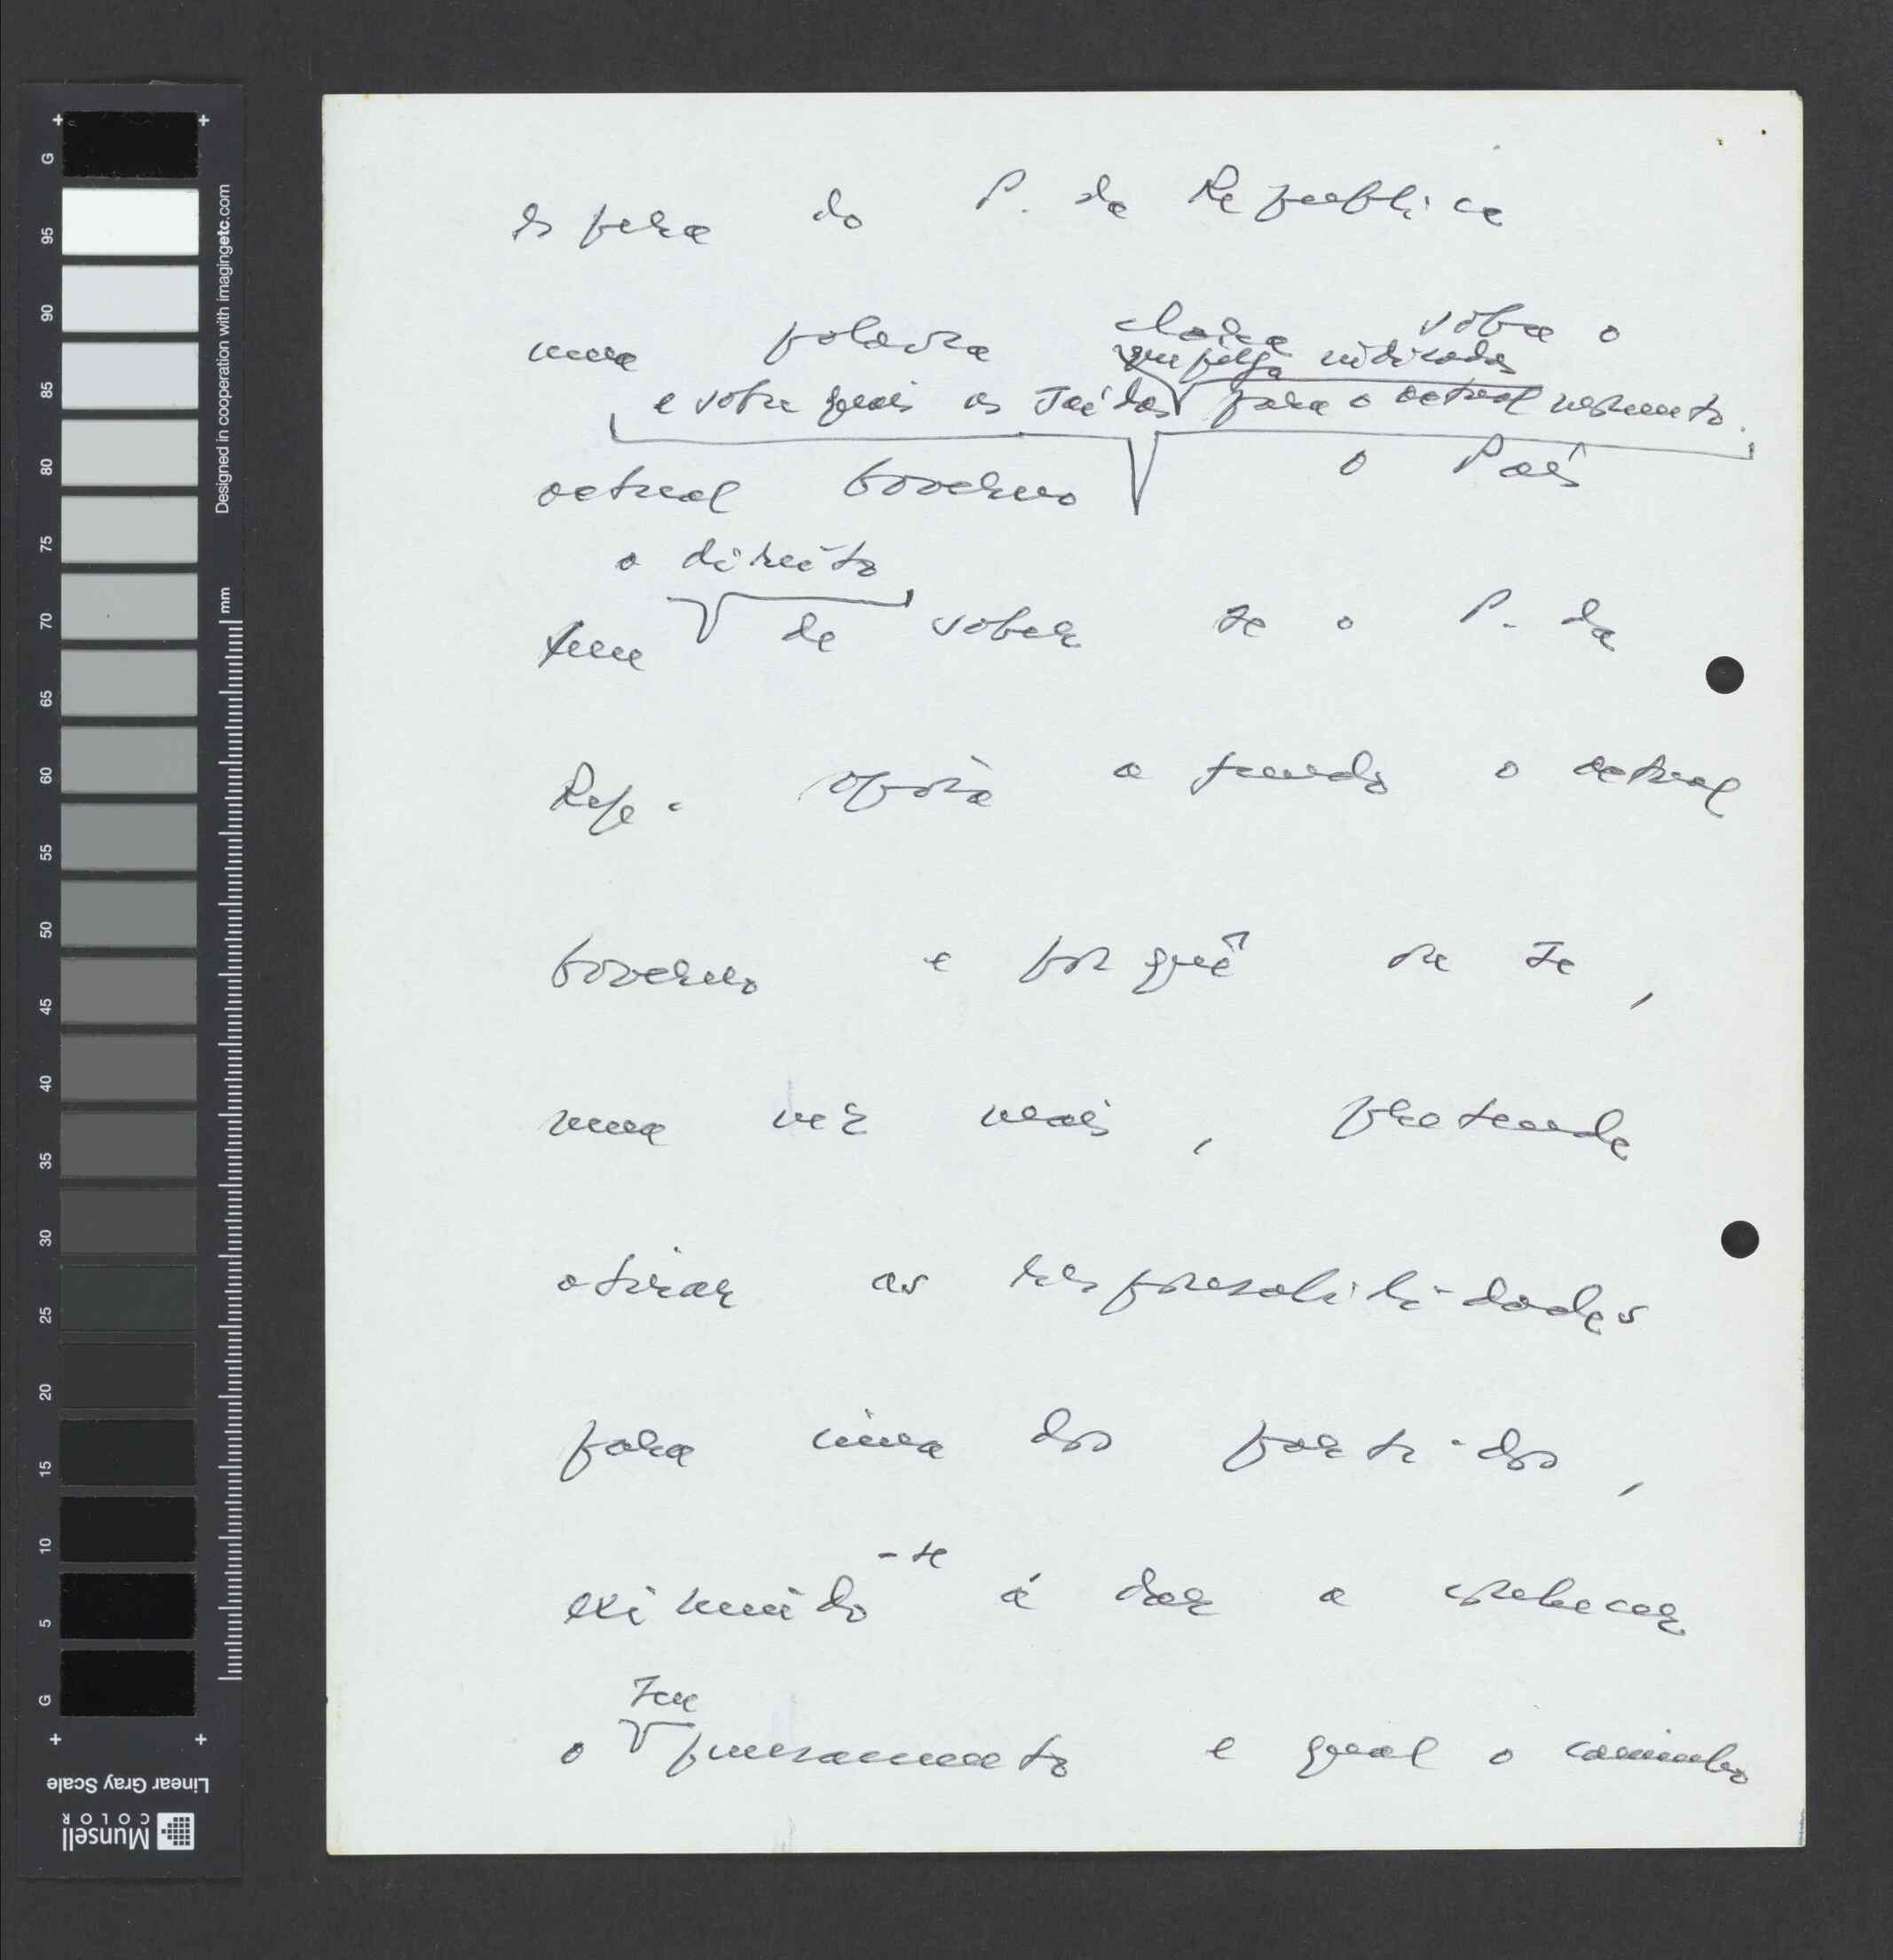 espera do P. da Republica
uma palavra clara sobre o
que julga indicadas
e sobre quais as saídas para o actual momento.
actual Governo o País
o direito
tem de saber se o P. da
Rep. apoia a fundo o actual
Governo e por quê ou se,
uma vez mais, pretende
atirar as responsabilidades
para cima dos partidos,
eximindo-se a dar a conhecer
seu
o pensamento e qual o caminho
G
95
90
85
80
75
70
65
60
55
50
45
40
35
30
25
20
15
10
5
G
Designed in cooperation with imagingetc.com
mm
Linear Gray Scale
Munsell
COLOR